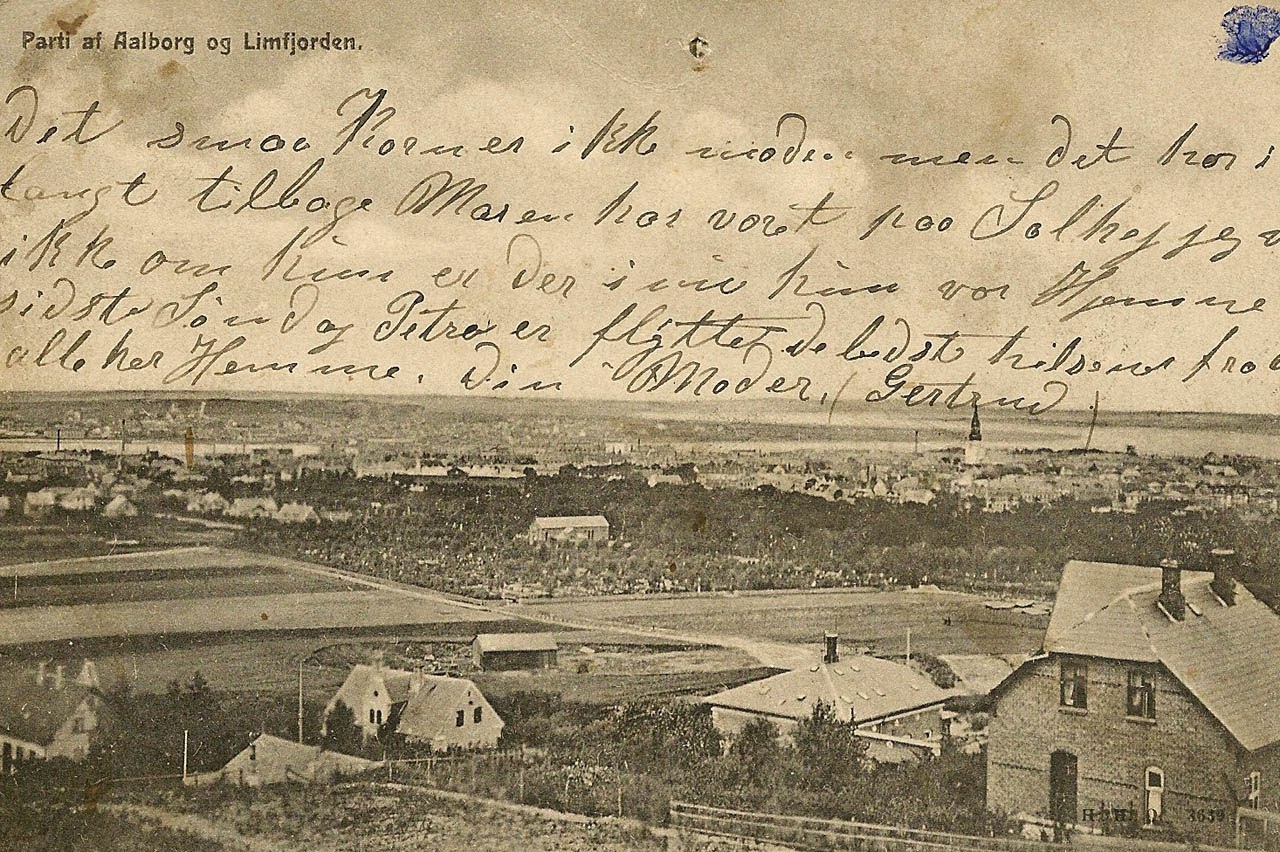 Parti af Aalborg og Limfjorden.
Det smaa Korn er ikke moden men det har i
langt tilbage Maren har voret paa Solhøj jeg
ikke om hun er der inu hun vor Hjemme
sidste Søndag Petra er flyttet de bedst hilsener fra
alle her Hjemme. Din Moder. Gertrud
H. H. O. 3639